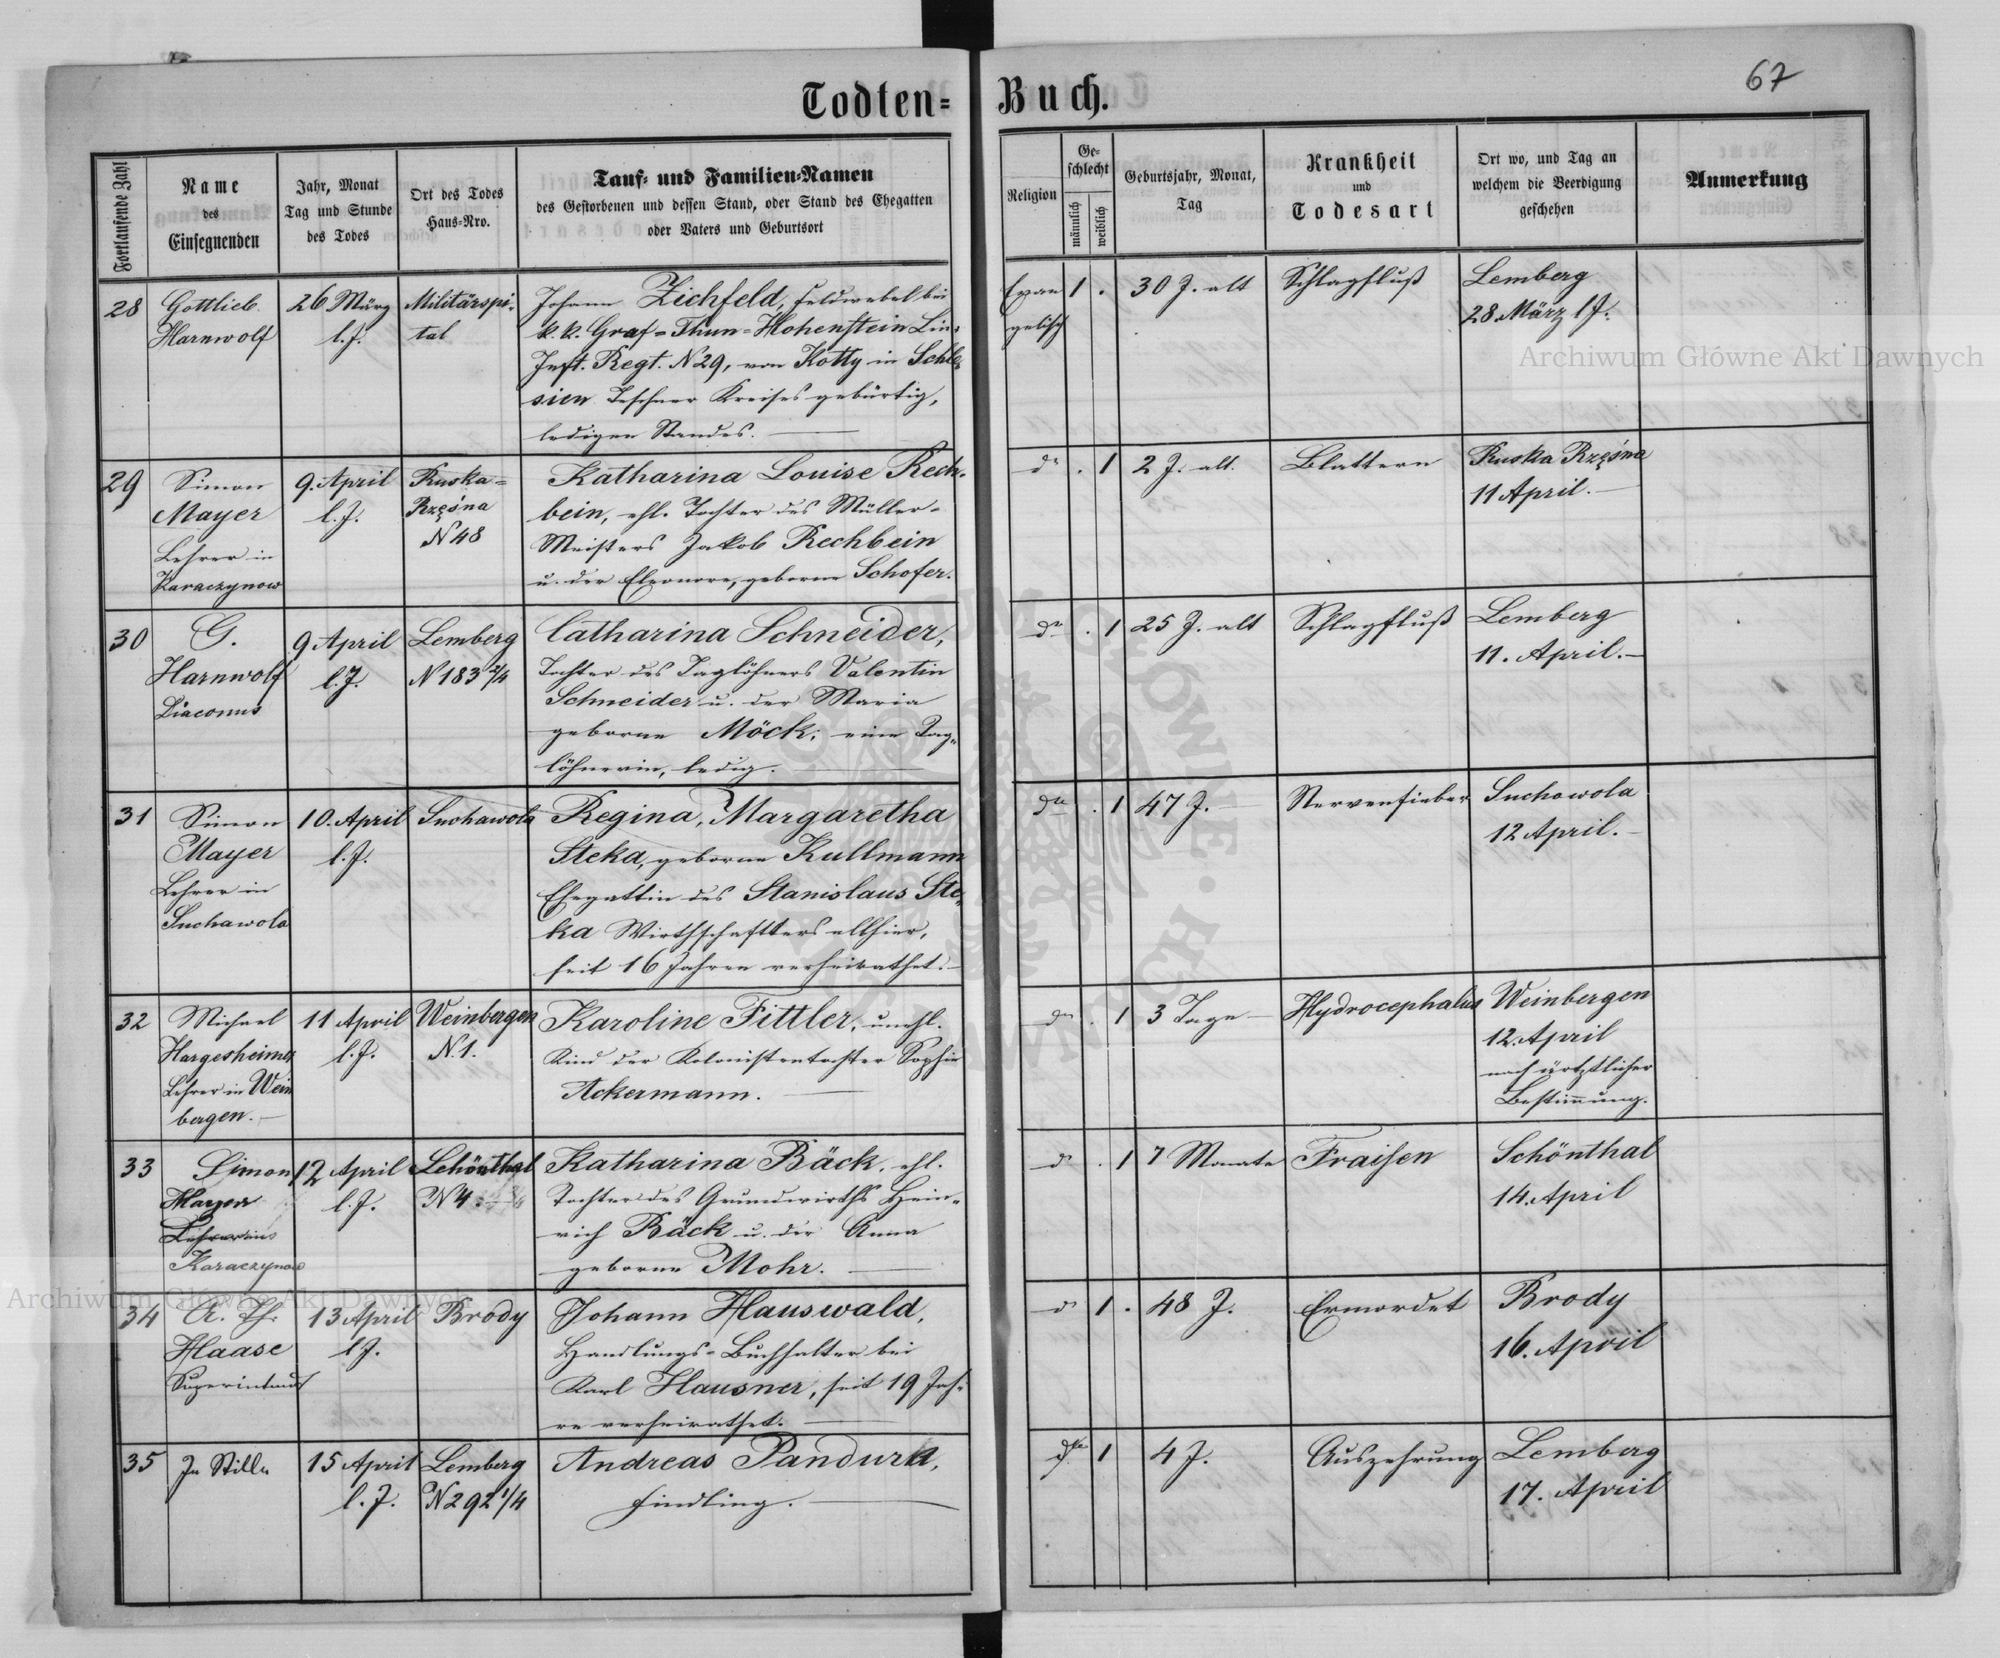 67
Todten=
Buch.
Fortlaufende Zahl
Name
des
Einsegnenden
Jahr, Monat
Tag und Stunde
des Todes
Ort des Todes
Haus-Nro.
Tauf- und Familien-Namen
des Gestorbenen und dessen Stand, oder Stand des Ehegatten
oder Vaters und Geburtsort
Religion
Ge-
schlecht
männlich
weiblich
Geburtsjahr, Monat,
Tag
Krankheit
und
Todesart
Ort wo, und Tag an
welchem die Beerdigung
geschehen
Anmerkung
28
Gottlieb
Harnwolf
26 März
l. J.
Militärspi-
tal
Johann Zichfeld, Feldwebel bei
k. k. Graf=Thun=Hohenstein Lin=
Inft. Regt. N 29, von Kotty in Schle=
sien Teschner Kreises gebürtig,
ledigen Standes.
Evan
gelisch
1
.
30 J. alt
Schlagfluß
Lemberg
28. März l J.
29
Simon
Mayer
Lehrer in
Karaczynow
9. April
l. J.
Ruska=
Rzęśna
N 48
Katharina Louise Rech-
bein, ehl. Tochter des Müller-
Meisters Jakob Rechbein
u. der Eleonore, geborne Schofer.
do
.
1
2 J. alt.
Blattern
Ruska Rzęśna
11 April.
30
G.
Harnwolf
Diaconus
9 April
l. J.
Lemberg
N 183 2/4
Catharina Schneider,
Tochter des Taglöhners Valentin
Schneider u. der Maria
geborne Möck; eine Tag=
löhnerin, ledig.
do
.
1
25 J. alt
Schlagfluß
Lemberg
11. April.
31
Simon
Mayer
Lehrer in
Suchawola
10. April
l. J.
Suchawola
Regina, Margaretha
Steka, geborne Kullmann
Ehegattin des Stanislaus Ste=
ka Wirthschafters allhier,
seit 16 Jahren verheirathet.
do
.
1
47 J.
Nervenfieber
Suchowola
12 April.
32
Michael
Hargesheimer
Lehrer in Wein
bergen.
11 April
l. J.
Weinbergen
N. 1.
Karoline Fittler, unehl.
Kind der Kolonistentochter Sophie
Ackermann.
do
.
1
3 Tage
Hydrocephalus
Weinbergen
12. April
nach ärtztlicher
Bestimmung.
33
Simon
Mayer
Lehrer in
Karaczynow
12 April
l. J.
Schönthal
N 4
Katharina Bäck, ehl.
Tochter des Grundwirths Hein=
rich Bäck u. der Anna
geborne Mohr.
do
.
1
7 Monate
Fraisen
Schönthal
14. April
34
A. Th.
Haase
Superintendt
13 April
l J.
Brody
Johann Hauswald,
Handlungs=Buchhalter bei
Karl Hausner, seit 19 Jah=
re verheirathet.
do
1
.
48 J.
Ermordet
Brody
16. April
35
In Stille
15 April
l. J.
Lemberg
N 292 1/4
Andreas Pandura,
Findling.
dto
1
4 J.
Auszehrung
Lemberg
17. April
Archiwum Główne Akt Dawnych
Archiwum Główne Akt Dawnych